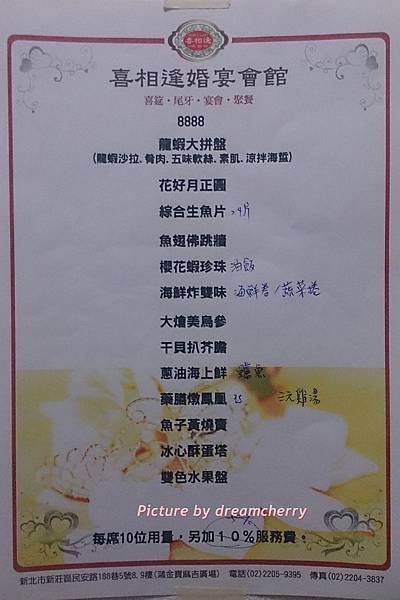 喜相逢
喜相逢婚宴會館
喜筵・尾牙・宴會・聚餐
8888
龍蝦大拼盤
(龍蝦沙拉.肴肉.五味軟絲.素肌.涼拌海蜇)
花好月正圓
綜合生魚片 24片
魚翅佛跳牆
櫻花蝦珍珠 油飯
海鮮炸雙味 海鮮卷/蔬菜捲
大燴美烏參
干貝扒芥膽
蔥油海上鮮
藥膳燉鳳凰 雞湯
魚子黃燒賣
冰心酥蛋塔
雙色水果盤
Picture by dreamcherry
每席10位用量，另加１０％服務費。
新北市新莊區民安路188巷5號8.9樓(鴻金寶麻吉廣場) 電話(02)2205-9395 傳真(02)2204-3837